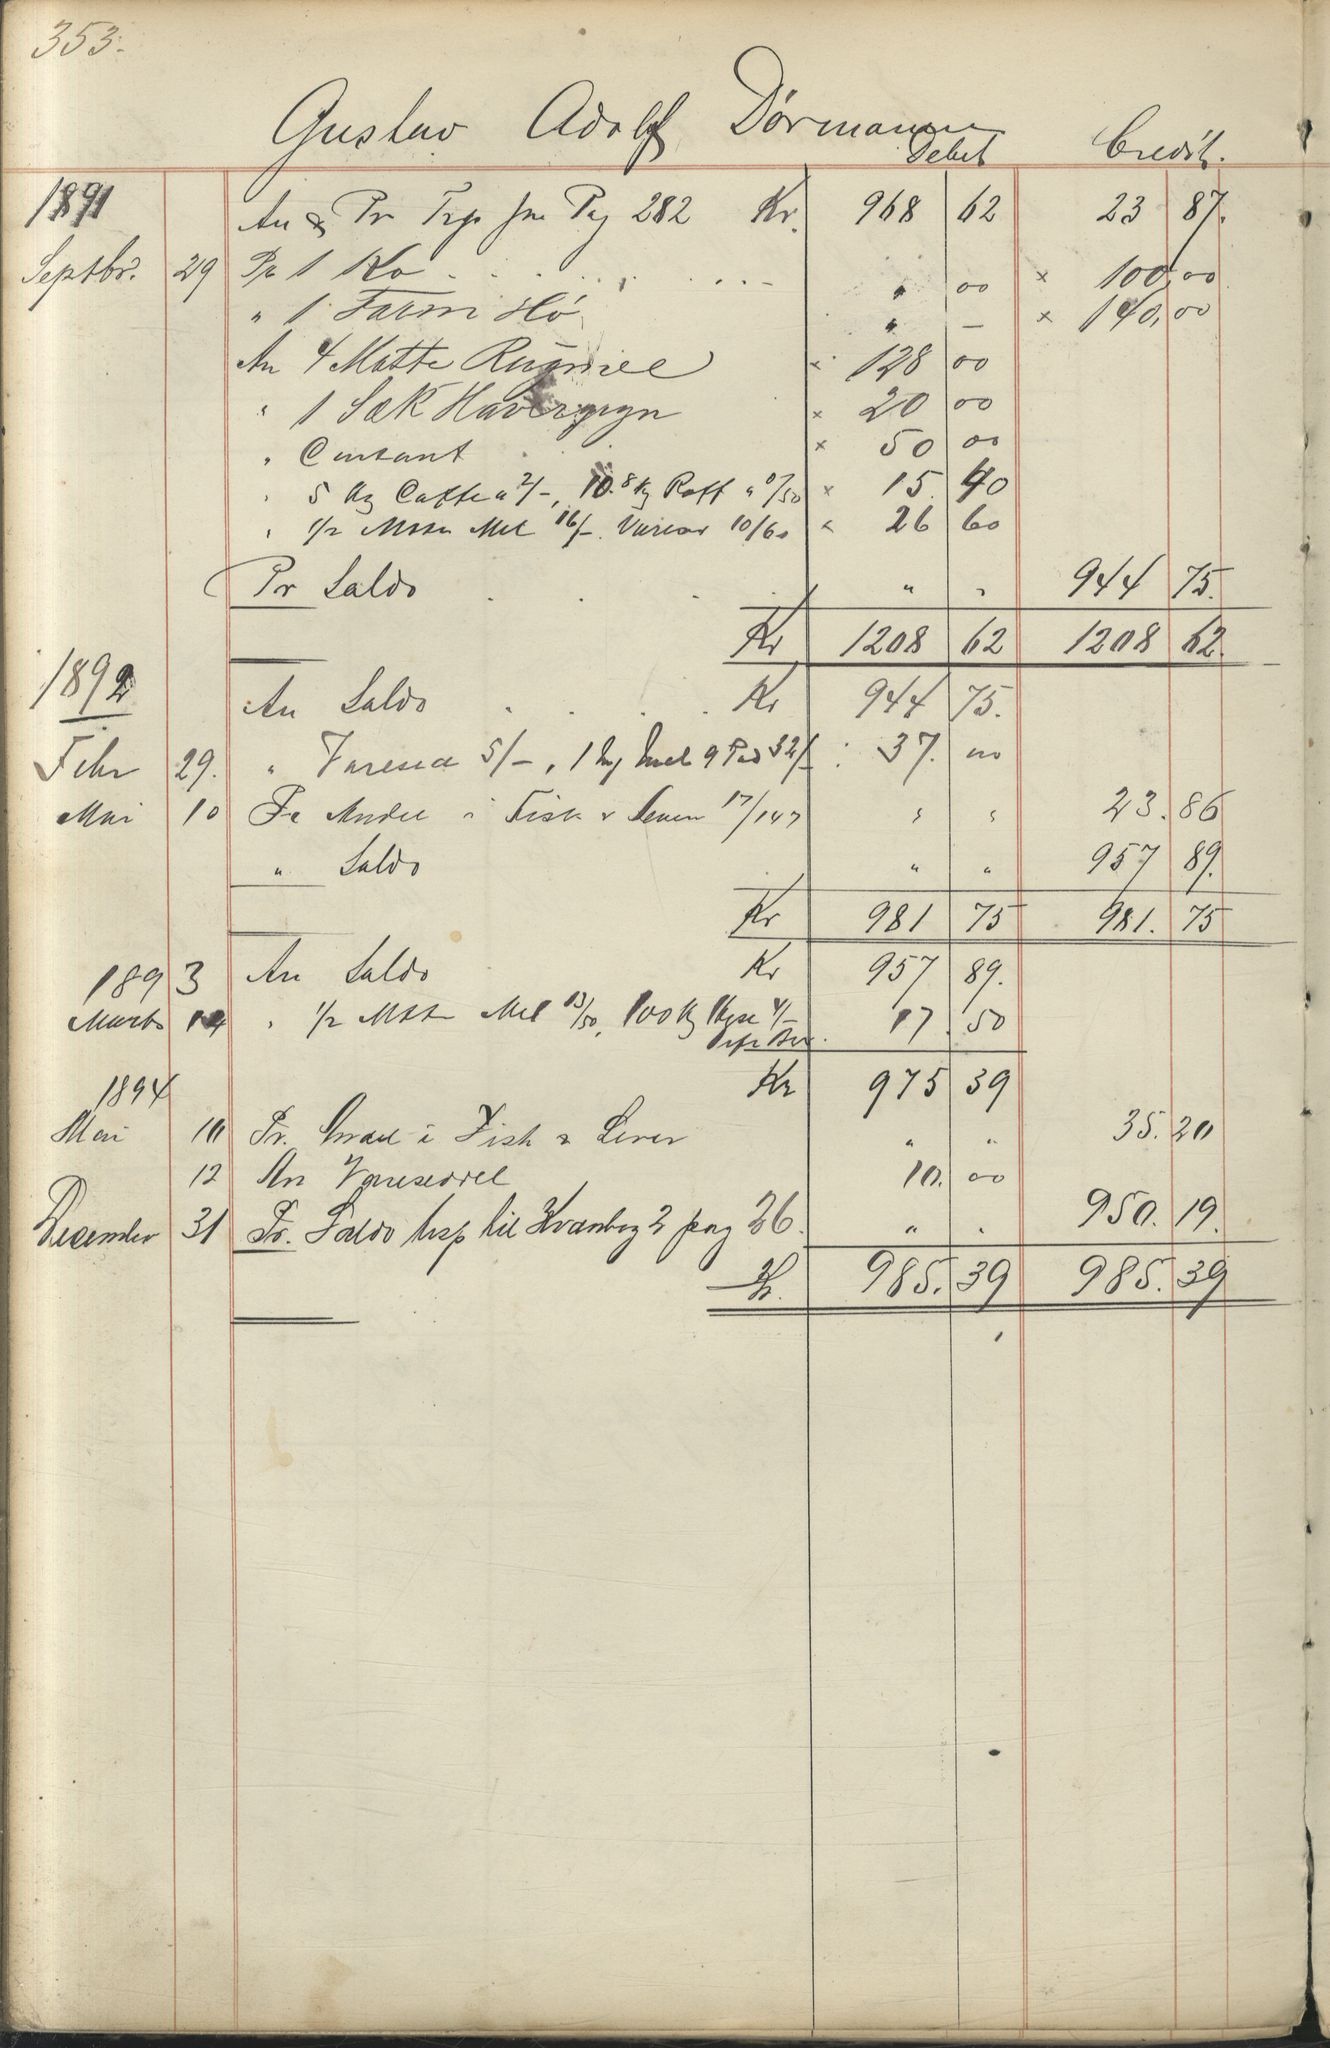 353.
Gustav Adolf Dørmann
Debet Credit.
1891 An & Pr Trp fra Pag 282 Kr. 968 62 23 87.
Septbr. 29 Pr 1 Ko " 00 × 100,00
" 1 Favn Hö " – × 140,00
An 4 Matte Rugmel × 128 00
" 1 Sæk Havregryn × 20 00
" Contant × 50 00
" 5 Kg Caffe a 2/–, 10.8 Kg a 0/50 × 15. 40
" 1/2 Matte Mel 16/– Varer 10/60 × 26 60
Pr Saldo " " 944 75.
Kr 1208 62 1208 62.
1892 An Saldo Kr 944 75.
Febr 29. " 5/–, 1 Mel 32/– 37. 00
Mai 10 Pr Andel i Fisk & Lever 17/147 " " 23. 86
" Saldo " " 957 89.
Kr 981 75 981. 75
1893 An Saldo Kr 957 89.
Marts 14 " 1/2 Matte Mel 13/50, 100 Kg 4/– 17. 50
1894 Kr 975 39
Mai 10 Pr. i Fisk & Lever " " 35. 20
12 An 10. 00
December 31 Pr. Saldo trsp til 2 pag 26. " " 950. 19.
Kr. 985. 39 985. 39